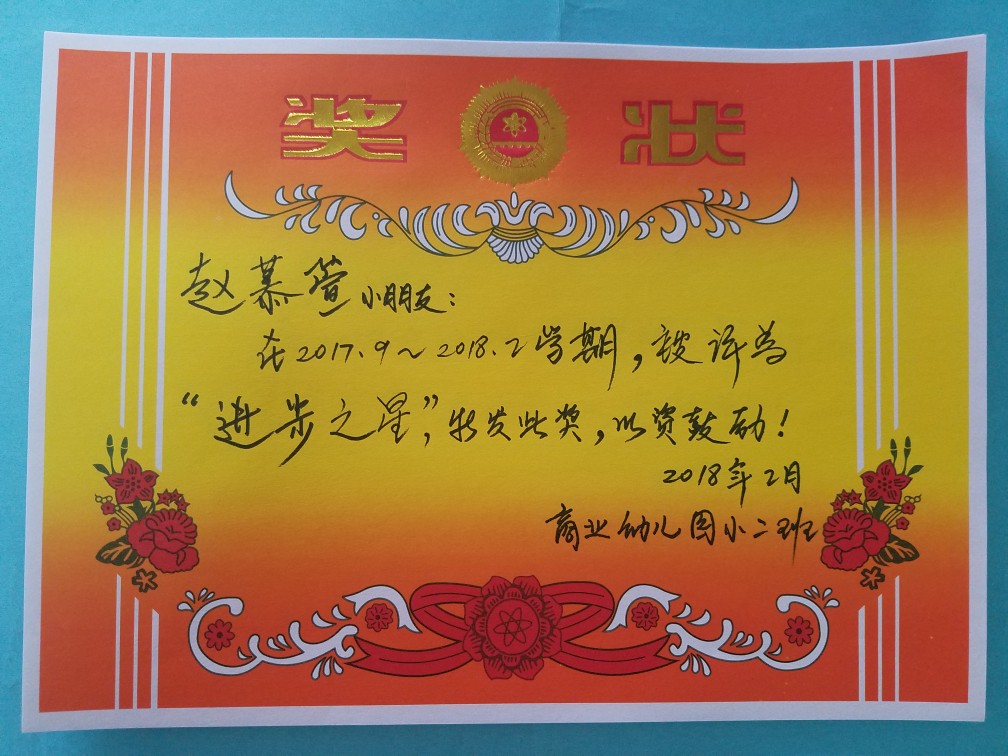 奖 状
赵慕萱小朋友：
在2017.9～2018.2学期，被评为
“进步之星”，特发此奖，以资鼓励！
2018年2月
商业幼儿园小二班